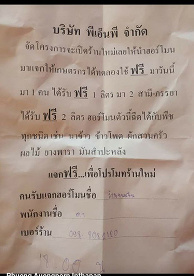 บริษัท พีเอ็นพี จำกัด
จัดโครงการจะเปิดร้านใหม่เลยให้นำฮอร์โมน
มาแจกให้เกษตรกรได้ทดลองใช้ ฟรี มาวันนี้
มา 1 คน ได้รับ ฟรี 1 ลิตร มา 2 สามี-ภรรยา
ได้รับ ฟรี 2 ลิตร ฮอร์โมนตัวนี้ฉีดได้กับพืช
ทุกชนิด เช่น นาข้าว ข้าวโพด ผักสวนครัว
ผลไม้ ยางพารา มันสำปะหลัง
แจกฟรี...เพื่อโปรโมทร้านใหม่
คนรับแจกฮอร์โมนชื่อ
พนักงานชื่อ
เบอร์ร้าน